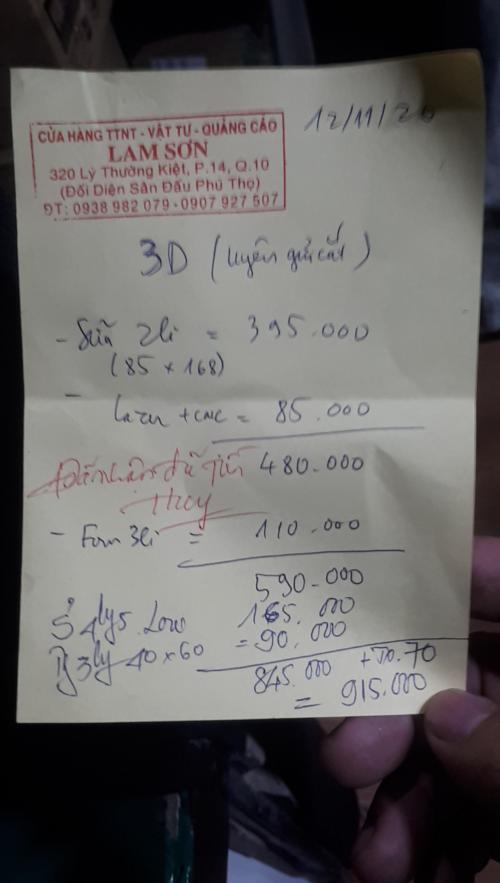 CỬA HÀNG TTNT - VẬT TƯ - QUẢNG CÁO
LAM SƠN
320 Lý Thường Kiệt, P.14, Q.10
(Đối Diện Sân Đấu Phú Thọ)
ĐT: 0938 982 079 - 0907 927 507
12/11/20
3D (uyên gửi cắt)
- Sữa 2li = 395.000
(85 x 168)
- lazer + CNC = 85.000
Đã nhận đủ tiền 480.000
Thuy
- Fom 3li = 110.000
590.000
165.000
3ly 40 x 60 = 90.000
845.000 + 70
= 915.000